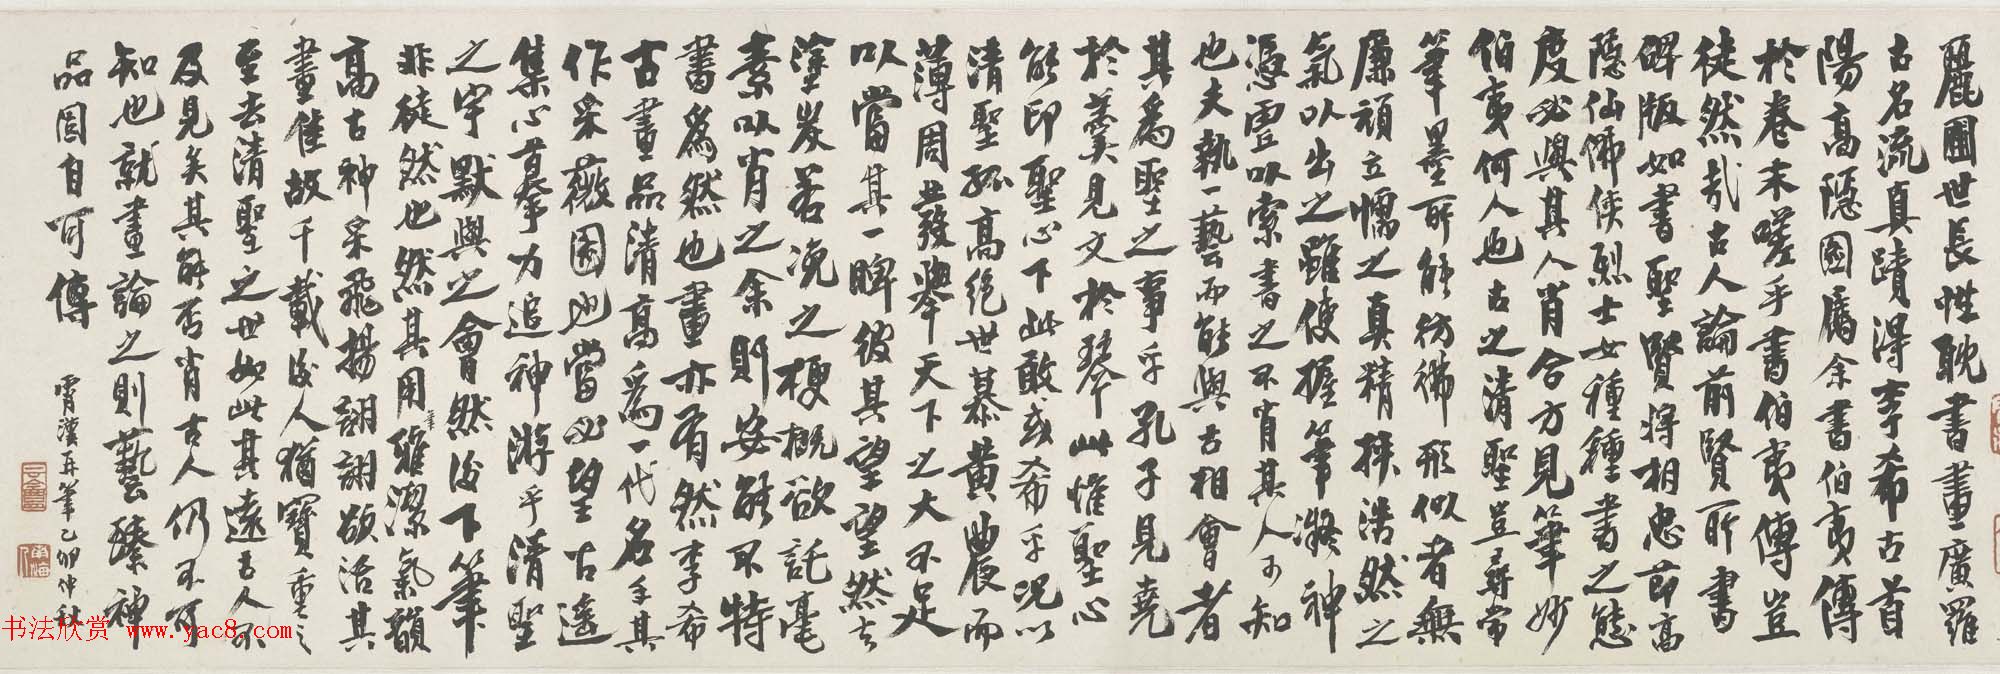 麗圃世長性耽書畫廣羅
古名流真蹟得李希古首
陽高隱圖屬余書伯夷傳
於卷末嗟乎書伯夷傳豈
徒然哉古人論前賢所書
碑版如書聖賢將相忠節高
隱仙佛俠烈士女種種書之態
度必與其人肖合方見筆妙
伯夷何人也古之清聖豈尋常
筆墨所能彷彿形似者無
廉頑立懦之真精挾浩然之
氣以出之雖使握筆凝神
憑虛以索書之不肖其人可知
也夫執一藝而能與古相會者
其為聖之事乎孔子見堯
於羹見文於琴此惟聖心
能印聖心下此敢或希乎況以
清聖孤高絕世慕黃農而
薄周世發舉天下之大不足
以當其一睥彼其望望然去
塗炭若浼之梗概欲託毫
素以肖之余則安能不特
書為然也畫亦有然李希
古畫品清高為一代名手其
作采薇圖也當必望古遙
集心摹力追神游乎清聖
之宇默與之會然後下筆
非徒然也然其用筆雅潔氣韻
高古神采飛揚栩栩欲活其
畫佳故千載後人猶寶重之
至去清聖之世如此其遠吾人不
及見矣其能否肖古人仍不可
知也就畫論之則藝臻神
品固自可傳
霄漢再筆乙卯仲秋
书法欣赏 www.yac8.com